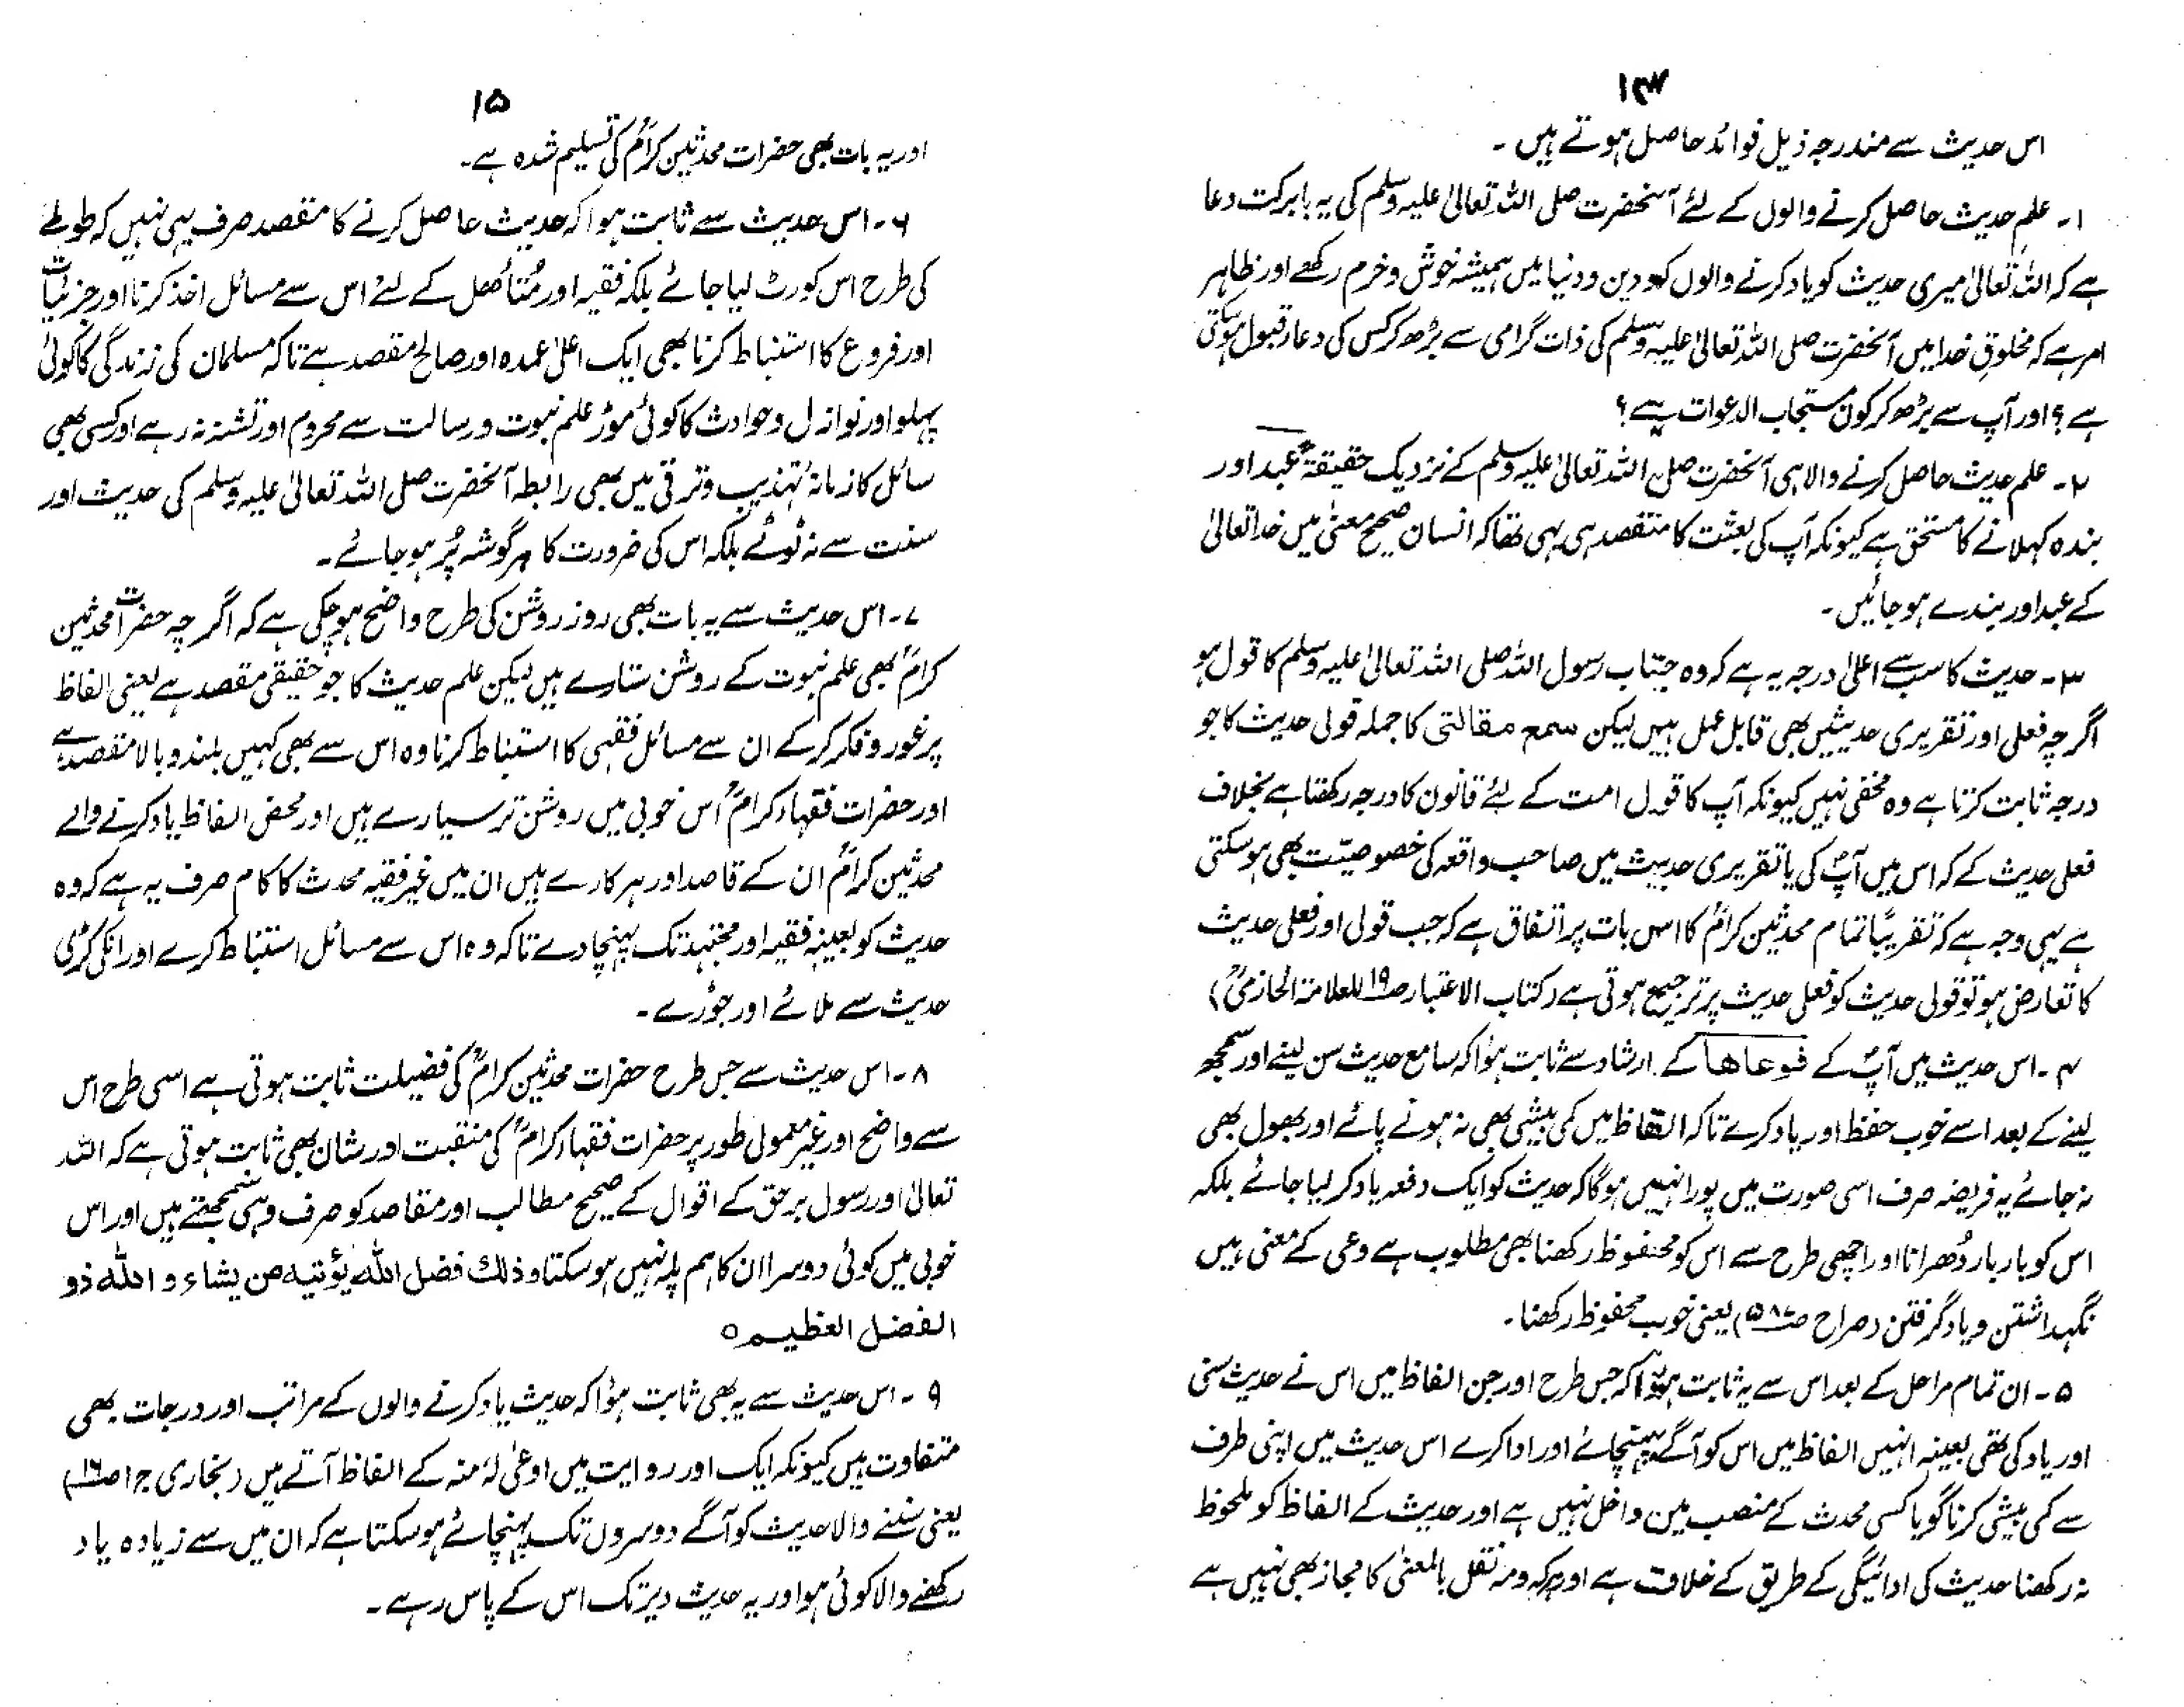 ۱۴
اس حدیث سے مندرجہ ذیل فوائد حاصل ہوتے ہیں ۔
۱۔ علم حدیث حاصل کرنے والوں کے لئے آنحضرت صلی اللہ تعالیٰ علیہ وسلم کی یہ بابرکت دعا
ہے کہ اللہ تعالیٰ میری حدیث کو یاد کرنے والوں کو دین و دنیا میں ہمیشہ خوش و خرم رکھے اور ظاہر
امر ہے کہ مخلوقِ خدا میں آنحضرت صلی اللہ تعالیٰ علیہ وسلم کی ذات گرامی سے بڑھ کر کس کی دعا قبول ہوسکتی
ہے؟ اور آپ سے بڑھ کر کون مستجاب الدعوات ہے؟
۲۔ علم حدیث حاصل کرنے والا ہی آنحضرت صلی اللہ تعالیٰ علیہ وسلم کے نزدیک حقیقۃً عبد اور
بندہ کہلانے کا مستحق ہے کیونکہ آپ کی بعثت کا مقصد ہی یہی تھا کہ انسان صحیح معنیٰ میں خدا تعالیٰ
کے عبد اور بندے ہو جائیں ۔
۳۔ حدیث کا سب سے اعلیٰ درجہ یہ ہے کہ وہ جناب رسول اللہ صلی اللہ تعالیٰ علیہ وسلم کا قول ہو
اگرچہ فعلی اور تقریری حدیثیں بھی قابل عمل ہیں لیکن سمع مقالتی کا جملہ قولی حدیث کا جو
درجہ ثابت کرتا ہے وہ مخفی نہیں کیونکہ آپ کا قول امت کے لئے قانون کا درجہ رکھتا ہے بخلاف
فعلی حدیث کے کہ اس میں آپؐ کی یا تقریری حدیث میں صاحب واقعہ کی خصوصیّت بھی ہو سکتی
ہے یہی وجہ ہے کہ تقریبًا تمام محدثین کرامؒ کا اس بات پر اتفاق ہے کہ جب قولی اور فعلی حدیث
کا تعارض ہو تو قولی حدیث کو فعلی حدیث پر ترجیح ہوتی ہے (کتاب الاعتبار ص۱۹ للعلامۃ الحازمیؒ)
۴۔ اس حدیث میں آپؐ کے فوعاھا کے ارشاد سے ثابت ہؤا کہ سامع حدیث سن لینے اور سمجھ
لینے کے بعد اسے خوب حفظ اور یاد کرے تاکہ الفاظ میں کمی بیشی بھی نہ ہونے پائے اور بھول بھی
نہ جائے یہ فریضہ صرف اسی صورت میں پورا نہیں ہوگا کہ حدیث کو ایک دفعہ یاد کر لیا جائے بلکہ
اس کو بار بار دُھرانا اور اچھی طرح سے اس کو محفوظ رکھنا بھی مطلوب ہے وعی کے معنی ہیں
نگہداشتن و یاد گرفتن (صراح ص۵۸۷) یعنی خوب محفوظ رکھنا۔
۵۔ ان تمام مراحل کے بعد اس سے یہ ثابت ہؤا کہ جس طرح اور جن الفاظ میں اس نے حدیث سنی
اور یاد کی تھی بعینہ انہیں الفاظ میں اس کو آگے پہنچائے اور ادا کرے اس حدیث میں اپنی طرف
سے کمی بیشی کرنا گویا کسی محدث کے منصب میں داخل نہیں ہے اور حدیث کے الفاظ کو ملحوظ
نہ رکھنا حدیث کی ادائیگی کے طریق کے خلاف ہے اور ہر کہ ومہ نقل بالمعنیٰ کا مجاز بھی نہیں ہے
۱۵
اور یہ بات بھی حضرات محدثین کرامؒ کی تسلیم شدہ ہے۔
۶۔ اس حدیث سے ثابت ہوا کہ حدیث حاصل کرنے کا مقصد صرف یہی نہیں کہ طوطے
کی طرح اس کو رٹ لیا جائے بلکہ فقیہ اور مُتأصل کے لئے اس سے مسائل اخذ کرنا اور جزئیات
اور فروع کا استنباط کرنا بھی ایک اعلیٰ عمدہ اور صالح مقصد ہے تاکہ مسلمان کی زندگی کا کوئی
پہلو اور نوازل و حوادث کا کوئی موڑ علم نبوت و رسالت سے محروم اور تشنہ نہ رہے اور کسی بھی
سائل کا زمانۂ تہذیب و ترقی میں بھی رابطہ آنحضرت صلی اللہ تعالیٰ علیہ وسلم کی حدیث اور
سنت سے نہ ٹوٹے بلکہ اس کی ضرورت کا ہر گوشہ پُر ہو جائے۔
۷۔ اس حدیث سے یہ بات بھی روز روشن کی طرح واضح ہو چکی ہے کہ اگرچہ حضرات محدثین
کرامؒ بھی علم نبوت کے روشن ستارے ہیں لیکن علم حدیث کا جو حقیقی مقصد ہے یعنی الفاظ
پر غور و فکر کرکے ان سے مسائل فقہی کا استنباط کرنا وہ اس سے بھی کہیں بلند و بالا مقصد ہے
اور حضرات فقہاء کرامؒ اس خوبی میں روشن تر سیارے ہیں اور محض الفاظ یاد کرنے والے
محدثین کرامؒ ان کے قاصد اور ہرکارے ہیں ان میں غیر فقیہ محدث کا کام صرف یہ ہے کہ وہ
حدیث کو بعینہٖ فقیہ اور مجتہد تک پہنچا دے تاکہ وہ اس سے مسائل استنباط کرے اور انکی کڑی
حدیث سے ملائے اور جوڑے ۔
۸۔ اس حدیث سے جس طرح حضرات محدثین کرامؒ کی فضیلت ثابت ہوتی ہے اسی طرح اس
سے واضح اور غیر معمولی طور پر حضرات فقہاء کرامؒ کی منقبت اور شان بھی ثابت ہوتی ہے کہ اللہ
تعالیٰ اور رسول برحق کے اقوال کے صحیح مطالب اور مقاصد کو صرف وہی سمجھتے ہیں اور اس
خوبی میں کوئی دوسرا ان کا ہم پلہ نہیں ہو سکتا وذلك فضل الله يؤتيه من يشاء و الله ذو
الفضل العظيم ہ
۹۔ اس حدیث سے یہ بھی ثابت ہؤا کہ حدیث یاد کرنے والوں کے مراتب اور درجات بھی
متفاوت ہیں کیونکہ ایک اور روایت میں اوعیٰ لہٗ منہ کے الفاظ آتے ہیں (بخاری ج۱ ص۱۶)
یعنی سننے والا حدیث کو آگے دوسروں تک پہنچائے ہو سکتا ہے کہ ان میں سے زیادہ یاد
رکھنے والا کوئی ہو اور یہ حدیث دیر تک اس کے پاس رہے ۔